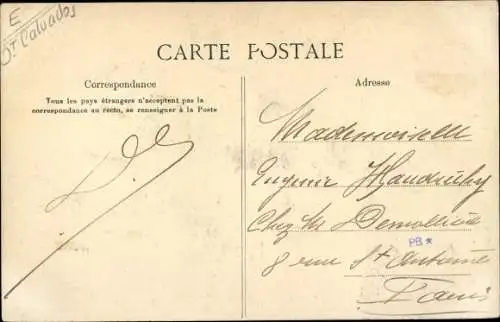 E
Dt Calvados
CARTE POSTALE
Correspondance
Tous les pays étrangers n'acceptent pas la
correspondance au recto, se renseigner à la Poste
Adresse
Mademoiselle
Eugenie
Chez Mr
PB *
8 rue St Antoine
Paris